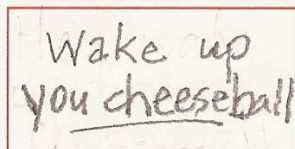 Wake up
you cheeseball